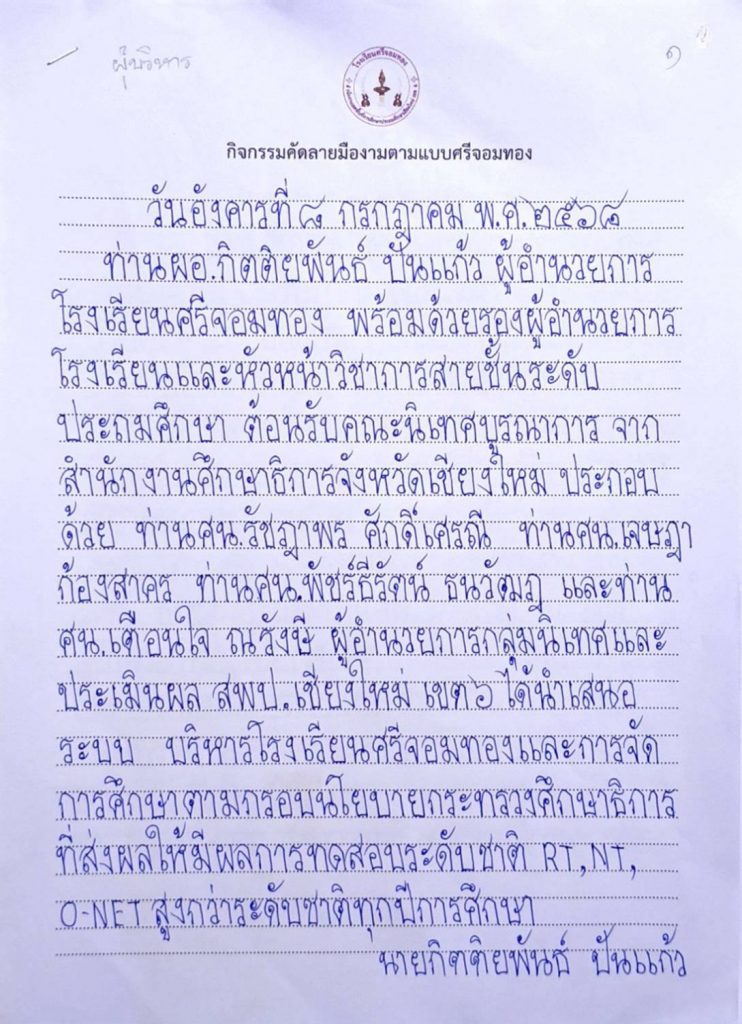 ผู้บริหาร
๑
โรงเรียนศรีจอมทอง
กิจกรรมคัดลายมืองามตามแบบศรีจอมทอง
วันอังคารที่ ๘ กรกฎาคม พ.ศ.๒๕๖๘
ท่านผอ.กิตติยพันธ์ ปันแก้ว ผู้อำนวยการ
โรงเรียนศรีจอมทอง พร้อมด้วยรองผู้อำนวยการ
โรงเรียนและหัวหน้าวิชาการสายชั้นระดับ
ประถมศึกษา ต้อนรับคณะนิเทศบูรณาการ จาก
สำนักงานศึกษาธิการจังหวัดเชียงใหม่ ประกอบ
ด้วย ท่านศน.รัชฎาพร ศักดิ์เศรณี ท่านศน.เจษฎา
ก้องสาคร ท่านศน.พัชร์ธีรัตน์ ธนวัฒมฎ และท่าน
ศน.เตือนใจ ณรังษี ผู้อำนวยการกลุ่มนิเทศและ
ประเมินผล สพป.เชียงใหม่ เขต๖ ได้นำเสนอ
ระบบ บริหารโรงเรียนศรีจอมทองและการจัด
การศึกษาตามกรอบนโยบายกระทรวงศึกษาธิการ
ที่ส่งผลให้มีผลการทดสอบระดับชาติ RT, NT,
O-NET สูงกว่าระดับชาติทุกปีการศึกษา
นายกิตติยพันธ์ ปันแก้ว